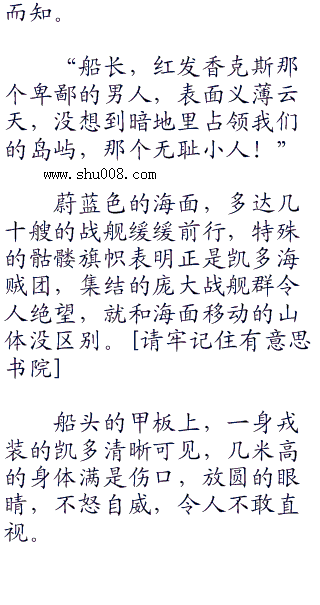 而知。
“船长，红发香克斯那
个卑鄙的男人，表面义薄云
天，没想到暗地里占领我们
的岛屿，那个无耻小人！”
www.shu008.com
蔚蓝色的海面，多达几
十艘的战舰缓缓前行，特殊
的骷髅旗帜表明正是凯多海
贼团，集结的庞大战舰群令
人绝望，就和海面移动的山
体没区别。[请牢记住有意思
书院]
船头的甲板上，一身戎
装的凯多清晰可见，几米高
的身体满是伤口，放圆的眼
睛，不怒自威，令人不敢直
视。